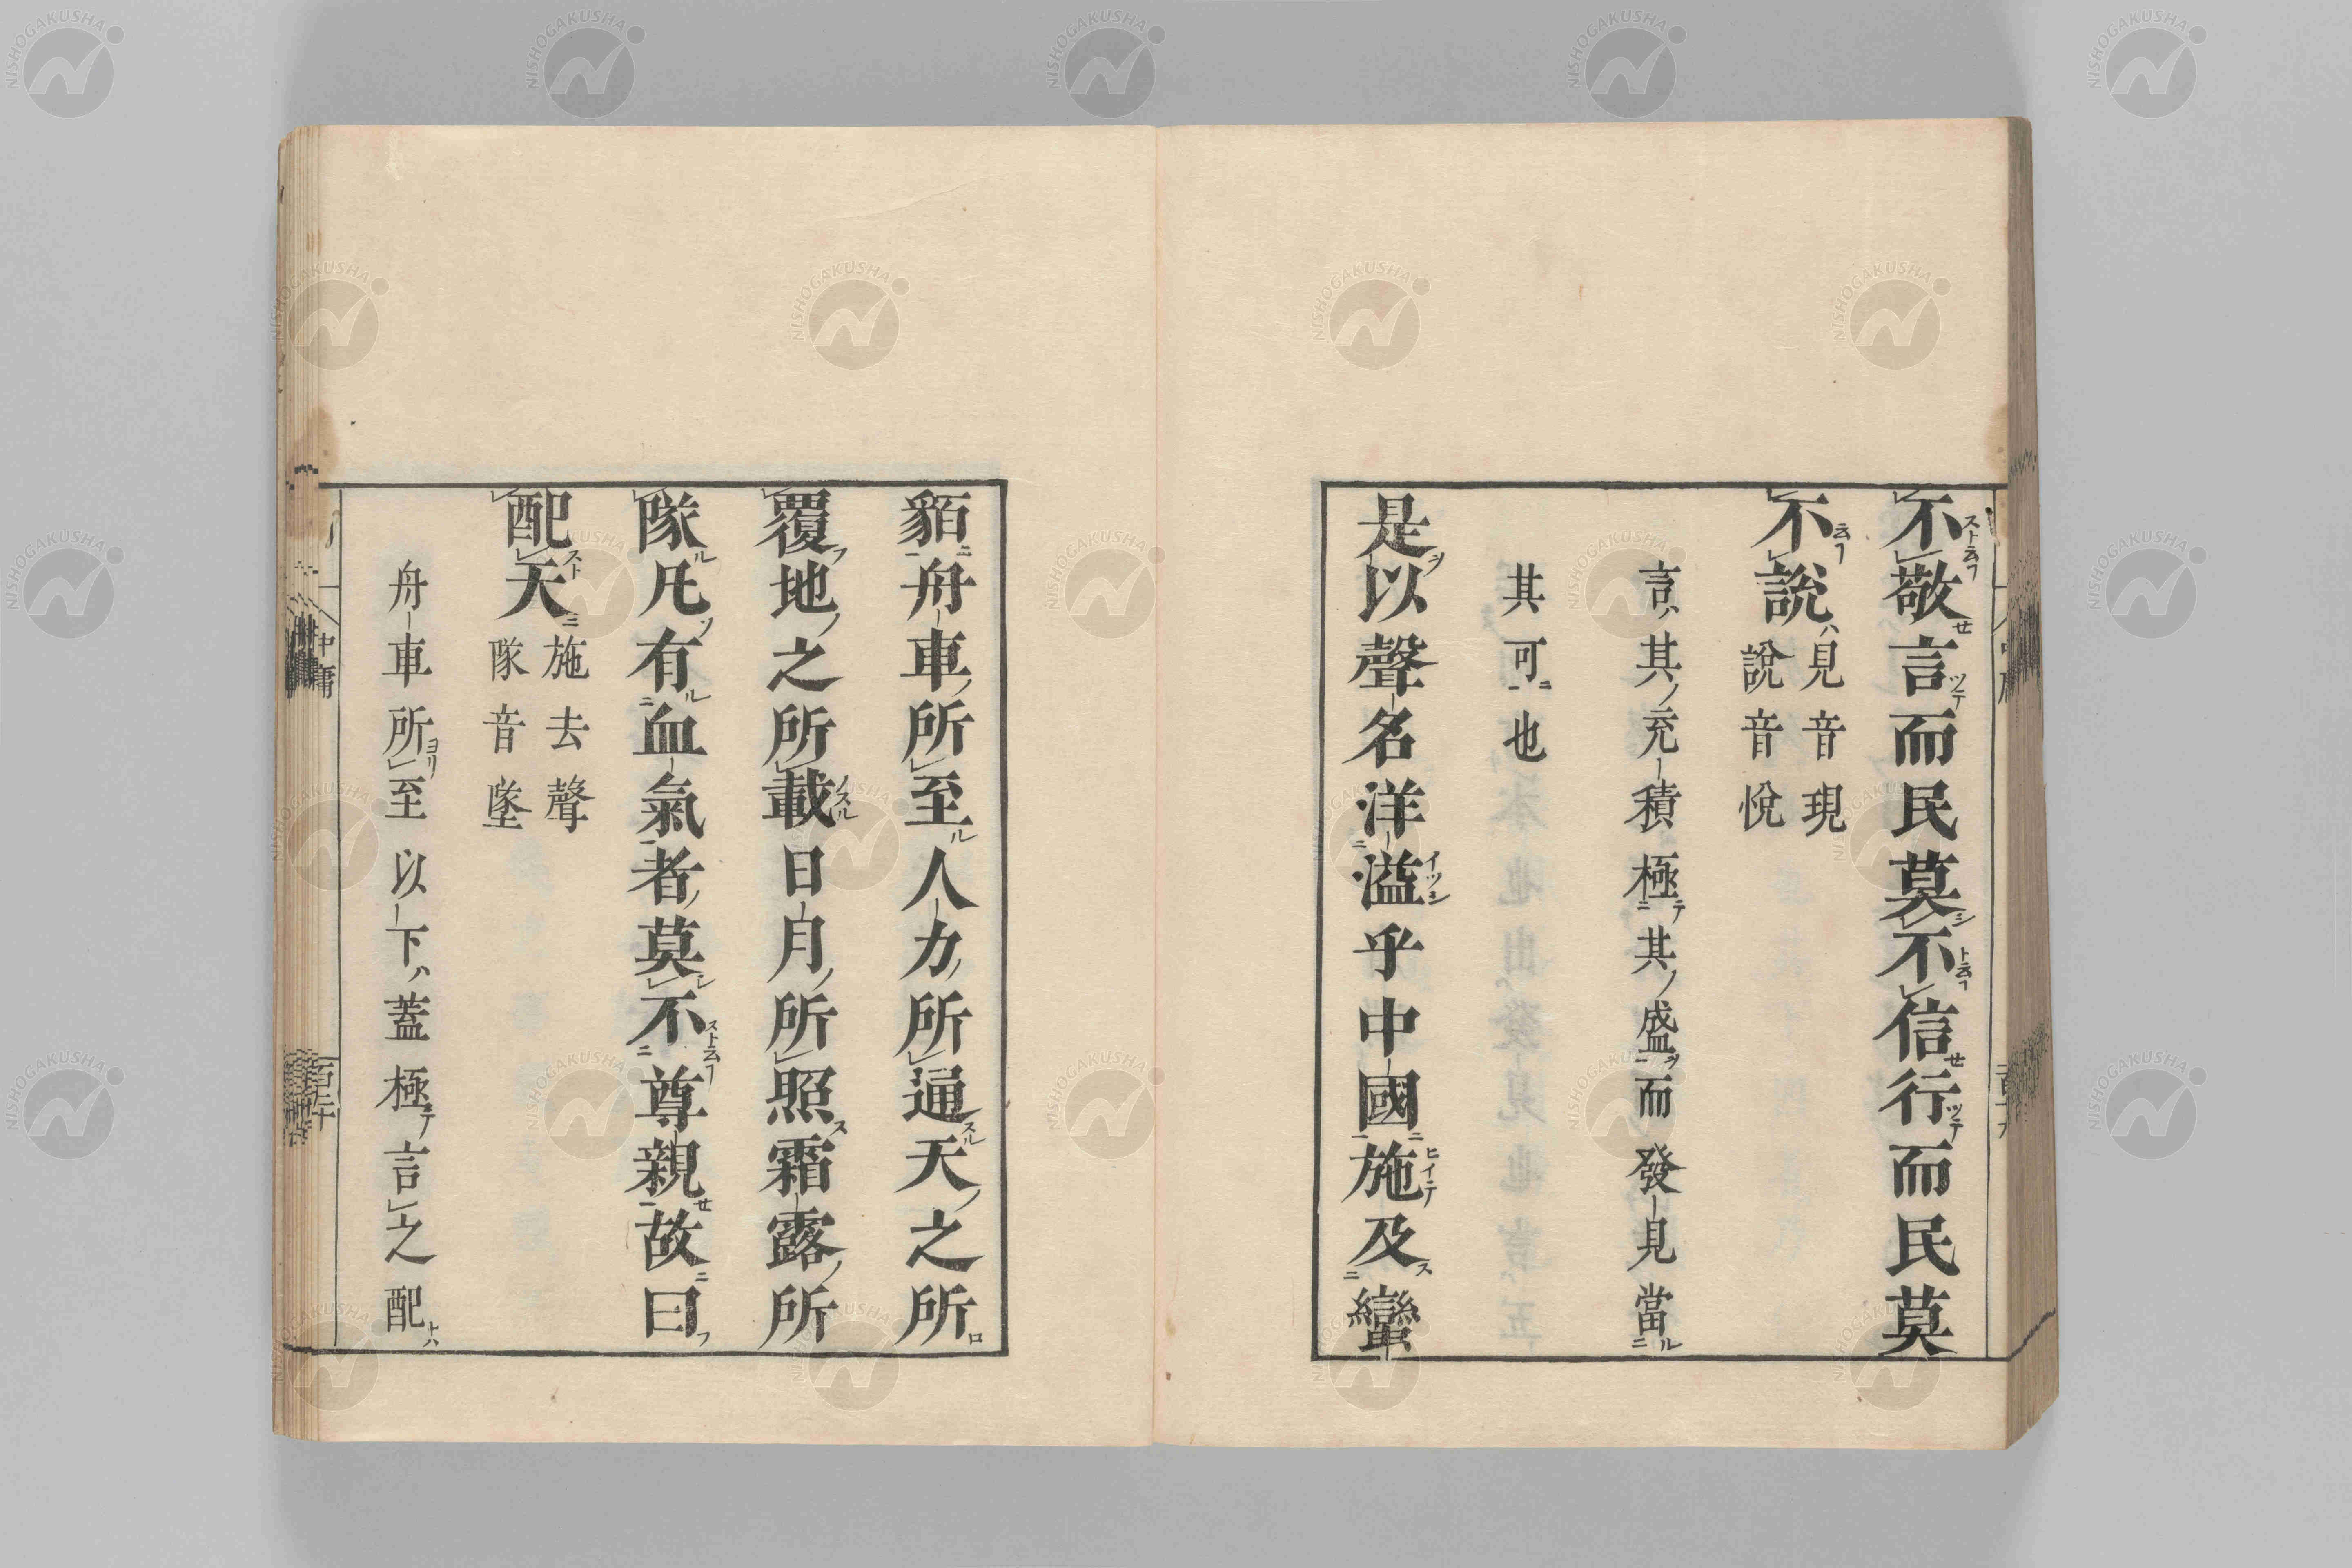 不敬言而民莫不信行而民莫
不說見音現說音悅
言其充積極其盛而發見當
其可也
是以聲名洋溢乎中國施及蠻
貊舟車所至人力所通天之所
覆地之所載日月所照霜露所
隊凡有血氣者莫不尊親故曰
配天施去聲隊音墜
舟車所至以下蓋極言之配
中庸
NISHOGAKUSHA